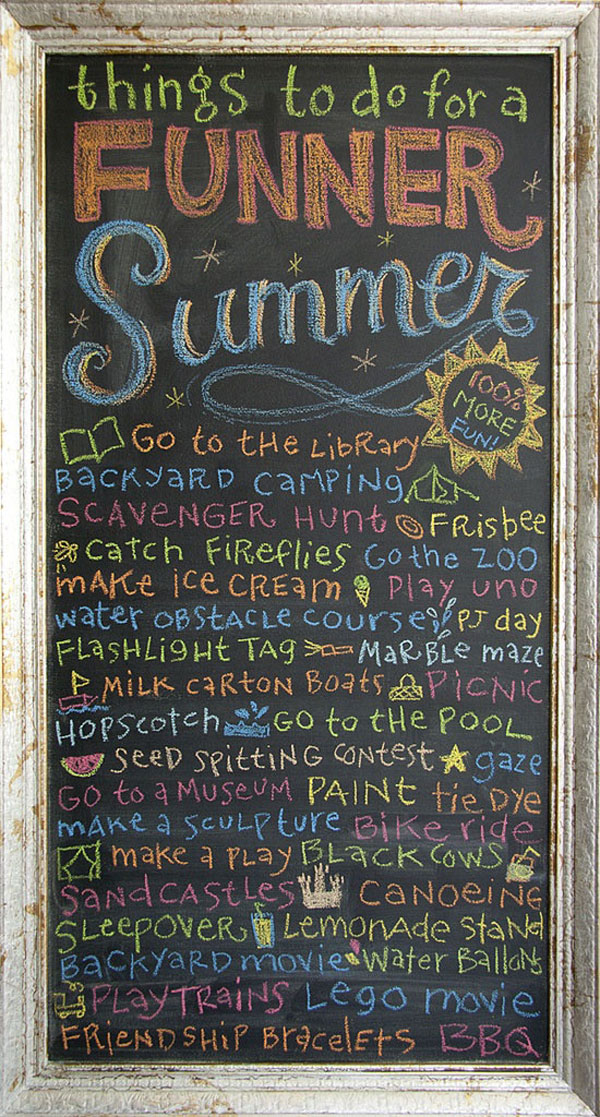 things to do for a
FUNNER
Summer
100%
MORE
FUN!
GO to tHe LiBRARy
BACKYARD CAMPiNg
SCAVENGER HUNT FRisbee
CATCH FiREFLiES Go the ZOO
MAKE iCE CREAM PLAY UNO
WATER OBSTACLE COURSE PJ day
FLASHLigHT TAG MARBLE maze
MiLK CARTON BoAtS PiCNiC
HOPSCOTCH GO to tHE POOL
SEED SPitTiNG CONTEST gaze
GO to a MUSEUM PAiNT tiE DYE
MAKE a SCULPTURE BiKE RiDE
make a PLAY BLACK COWS
SANDCASTLES CANOEiNG
SLEEPOVER LEMONADE StaNd
BACKYARD movie Water BALLONS
PLAYTRAiNS LEgo movie
FRiENDSHiP BRacELETS BBQ